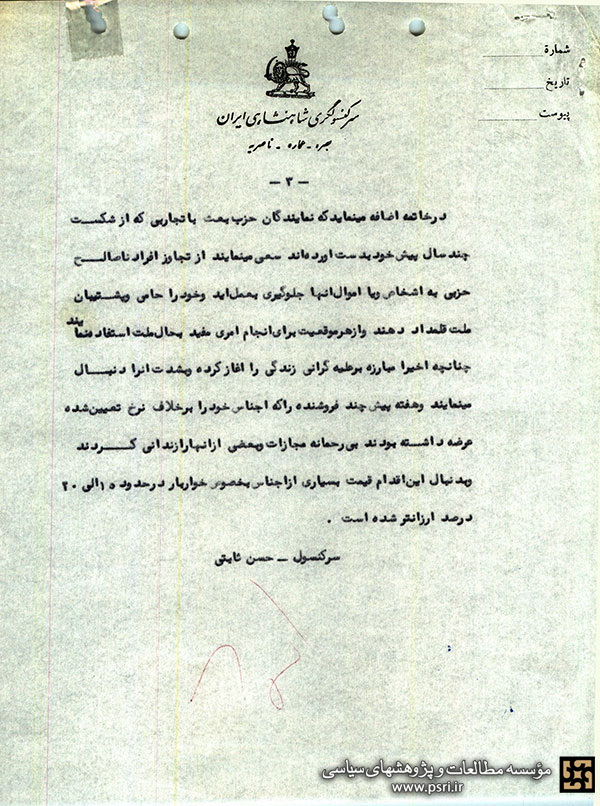 شمارة
تاریخ
پیوست
سرکنسولگری شاهنشاهی ایران
بصره - عماره - ناصریه
— ۳ —
درخاتمه اضافه مینماید که نمایندگان حزب بعث با تجاربی که از شکست
چند سال پیش خود بدست آورده‌اند سعی مینمایند از تجاوز افراد ناصالح
حزبی به اشخاص ویا اموال انها جلوگیری بعمل اید وخود را حامی وپشتیبان
ملت قلمداد دهند وازهر موقعیت برای انجام امری مفید بحال ملت استفاده نمایند
چنانچه اخیرا مبارزه برعلیه گرانی زندگی را اغاز کرده وبشدت انرا دنبال
مینمایند وهفته پیش چند فروشنده راکه اجناس خود را برخلاف نرخ تعیین شده
عرضه داشته بودند بی رحمانه مجازات وبعضی از انهارا زندانی کردند
وبدنبال این اقدام قیمت بسیاری از اجناس بخصوص خواربار در حدود ۱۵ الی ۲۰
درصد ارزانتر شده است .
سرکنسول - حسن ثابتی
مؤسسه مطالعات و پژوهشهای سیاسی
www.psri.ir